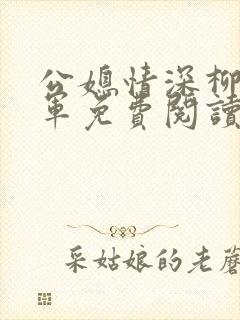 公媳情深柳
軍免費閱讀
采姑娘的老蘑